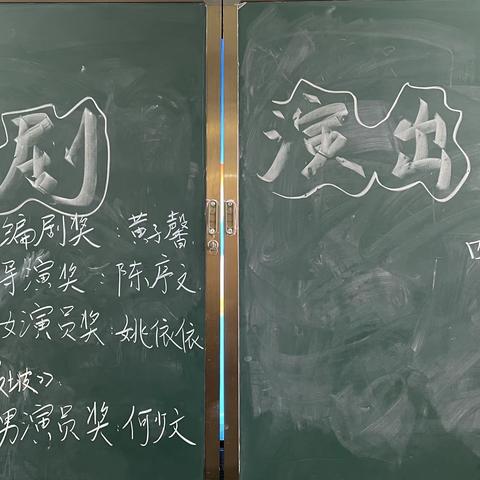 剧 演出
编剧奖：黄子馨
导演奖：陈序文
女演员奖：姚依依
坡》》：
男演员奖：何少文